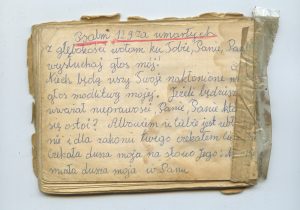 Psalm 129 za umarłych
z głębokości wołam ku Tobie, Panie, Panie
wysłuchaj głos mój!
Niech będą uszy Twoje nakłonione na
głos modlitwy mojej. Jeżeli będziesz
uważał nieprawości Panie, Panie któż
się ostoi? Albowiem u Ciebie jest ubł
i dla zakonu twego czekałem
czekała dusza moja na słowo Jego
miała dusza moja w Panu